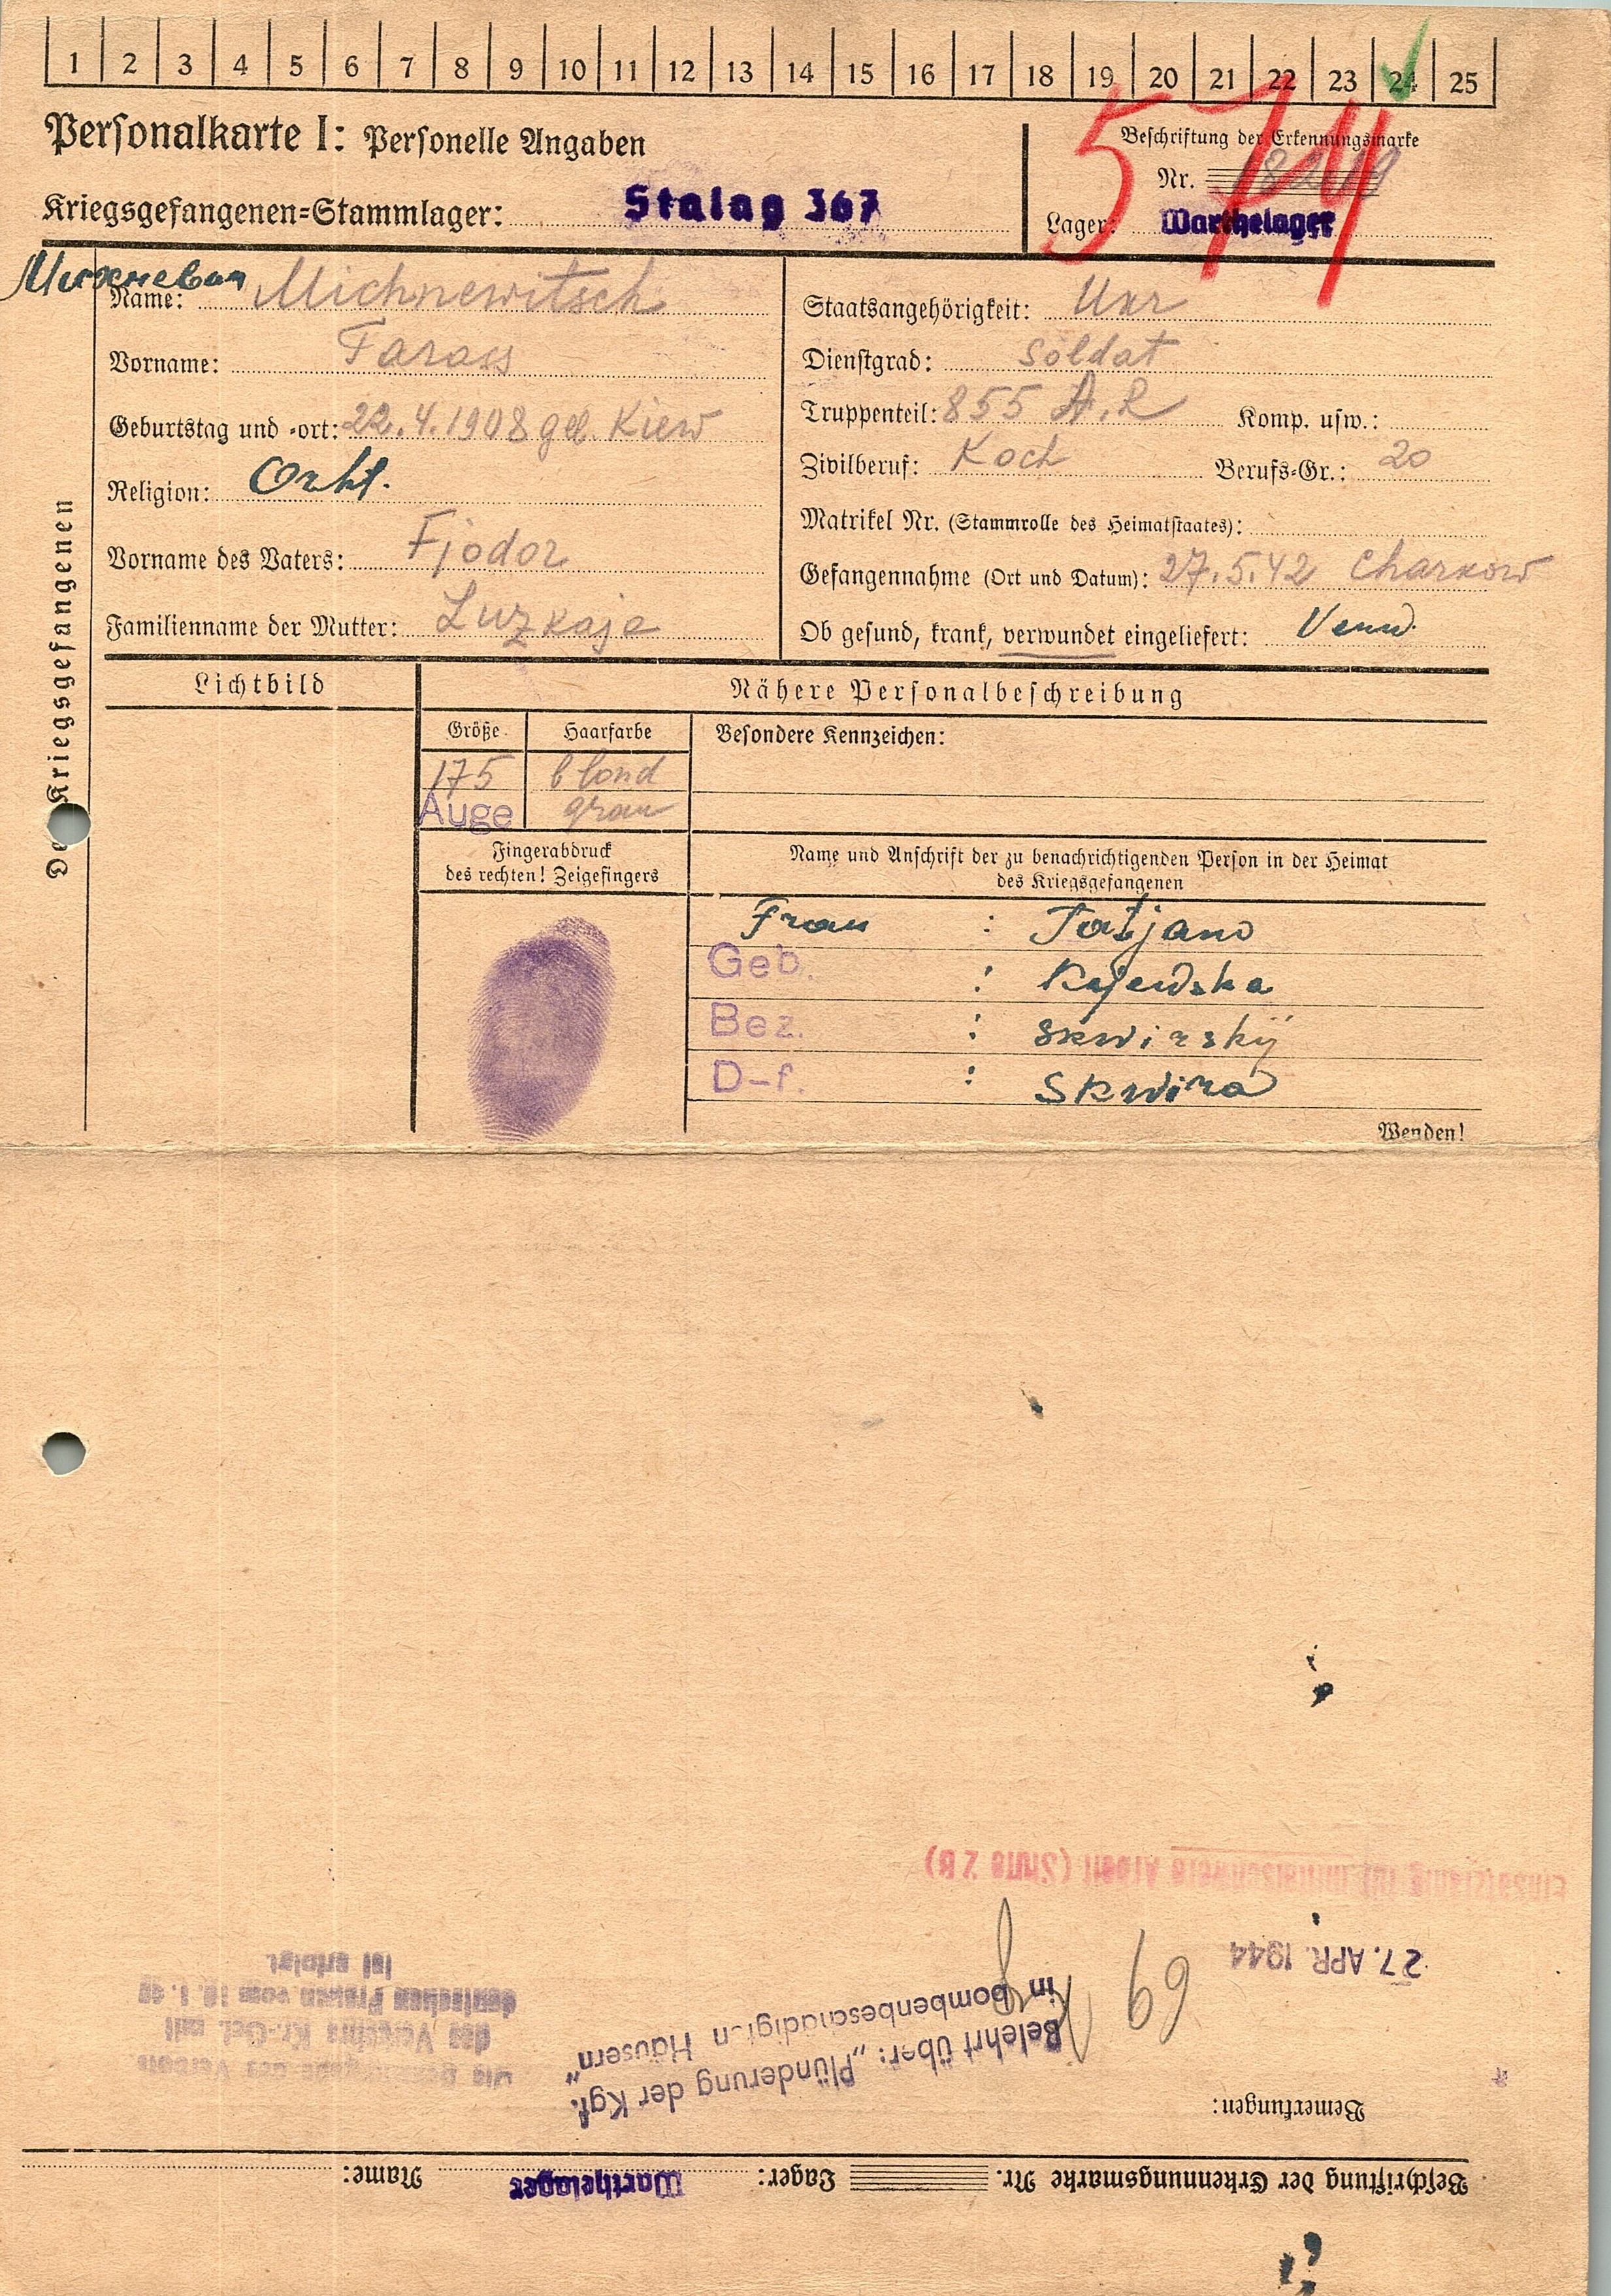 1 2 3 4 5 6 7 8 9 10 11 12 13 14 15 16 17 18 19 20 21 22 23 24 25
Personalkarte I: Personelle Angaben
Beschriftung der Erkennungsmarke
574
Nr.
Kriegsgefangenen=Stammlager: Stalag 367
Lager: Warthelager
Des Kriegsgefangenen
Name: Michnewitsch
Vorname: Tarass
Geburtstag und =ort: 22.4.1908 geb. Kiew
Religion: Orht.
Vorname des Vaters: Fjodor
Familienname der Mutter: Luzkaja
Staatsangehörigkeit: Ukr
Dienstgrad: Soldat
Truppenteil: 855 A.R Komp. usw.:
Zivilberuf: Koch Berufs=Gr.: 20
Matrikel Nr. (Stammrolle des Heimatstaates):
Gefangennahme (Ort und Datum): 27.5.42 Charkow
Ob gesund, krank, verwundet eingeliefert: Verw.
Lichtbild
Nähere Personalbeschreibung
Größe Haarfarbe
175 blond
Auge grau
Besondere Kennzeichen:
Fingerabdruck
des rechten! Zeigefingers
Name und Anschrift der zu benachrichtigenden Person in der Heimat
des Kriegsgefangenen
Frau : Tatjana
Geb. : Rajewska
Bez. : Skwirskÿ
D-f. : Skwira
Wenden!
Beschriftung der Erkennungsmarke Nr. Lager: Warthelager Name:
Bemerkungen:
Belehrt über: „Plünderung der Kgf.
in bombenbeschädigten Häusern"
69
27. APR. 1944
Die Bekanntgabe des Verbots
des Verkehrs Kr.-Gef. mit
deutschen Frauen vom
ist erfolgt.
Einsatzfähig für mittelschwere Arbeit (Stufe 2 B)